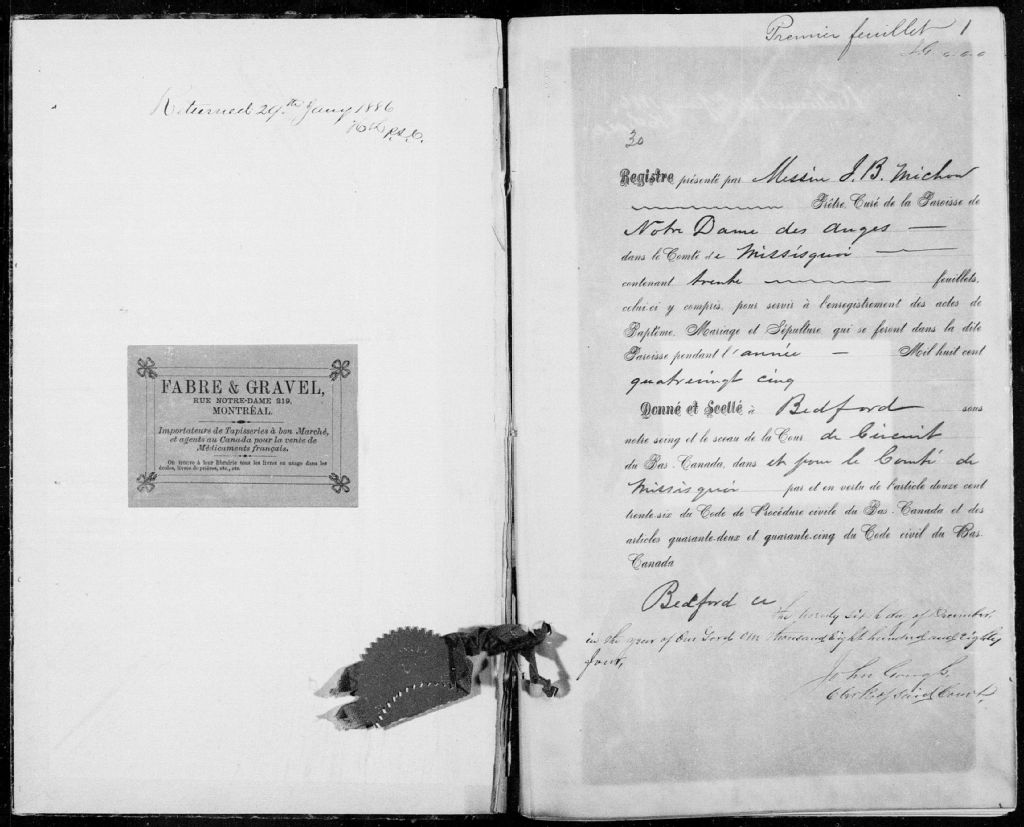 Returned 29th Jany 1886
FABRE & GRAVEL,
RUE NOTRE-DAME 219,
MONTRÉAL.
Importateurs de Tapisseries à bon Marché,
et agents au Canada pour la vente de
Médicaments français.
On trouve à leur librairie tous les livres en usage dans les
écoles, livres de prières, etc., etc.
Premier feuillet 1
30
Registre présenté par Messire J. B. Michon
Prêtre, Curé de la Paroisse de
Notre Dame des anges
dans le Comté de Missisquoi
contenant trente feuillets,
celui-ci y compris, pour servir à l'enregistrement des actes de
Baptême, Mariage et Sépulture, qui se feront dans la dite
Paroisse pendant l'année Mil huit cent
quatrevingt cinq
Donné et Scellé à Bedford sous
notre seing et le sceau de la Cour de Circuit
du Bas-Canada, dans et pour le Comté de
Missisquoi par et en vertu de l'article douze cent
trente-six du Code de Procédure civile du Bas-Canada et des
articles quarante-deux et quarante-cinq du Code civil du Bas-
Canada
Bedford ce the twenty sixth day of December,
in the year of Our Lord One thousand Eight hundred and Eighty
four,
John
Clerk of said Court